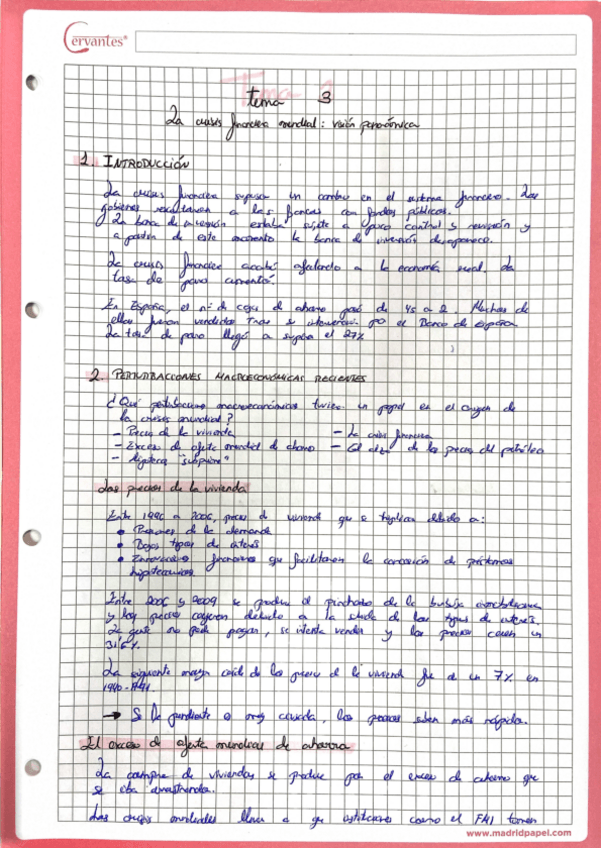 Cervantes®
Tema 3
La crisis financiera mundial: visión panorámica
1. INTRODUCCIÓN
La crisis financiera supuso un cambio en el sistema financiero. Los
gobiernos rescataron a los bancos con fondos públicos.
La banca de inversión estaba sujeta a poco control y revisión y
a partir de este momento la banca de inversión desaparece.
La crisis financiera acabó afectando a la economía real. La
tasa de paro aumentó.
En España, el nº de cajas de ahorro pasó de 45 a 2. Muchas de
ellas fueron vendidas tras su intervención por el Banco de España
La tasa de paro llegó a superar el 27%
2. PERTURBACIONES MACROECONÓMICAS RECIENTES
¿Qué perturbaciones macroeconómicas tuvieron un papel en el origen de
la crisis mundial?
- Precios de la vivienda
- La crisis financiera
- Exceso de oferta mundial de ahorro
- El alza de los precios del petróleo
- Hipotecas "subprime"
Los precios de la vivienda
Entre 1996 a 2006, precios de vivienda que se triplican debido a:
• Presiones de la demanda
• Bajos tipos de interés
• Innovaciones financieras que facilitaron la concesión de préstamos
hipotecarios
Entre 2006 y 2009 se produce el pinchazo de la burbuja inmobiliaria
y los precios cayeron debido a la subida de los tipos de interés.
La gente no puede pagar, se intenta vender y los precios caen un
31'6%.
La siguiente mayor caída de los precios de la vivienda fue de un 7% en
1940-1941.
→ Si la pendiente es muy elevada, los precios suben más rápido.
El exceso de oferta mundial de ahorro
La compra de viviendas se produce por el exceso de ahorro que
se iba arrastrando.
Las crisis llevan a que instituciones como el FMI tomen
www.madridpapel.com